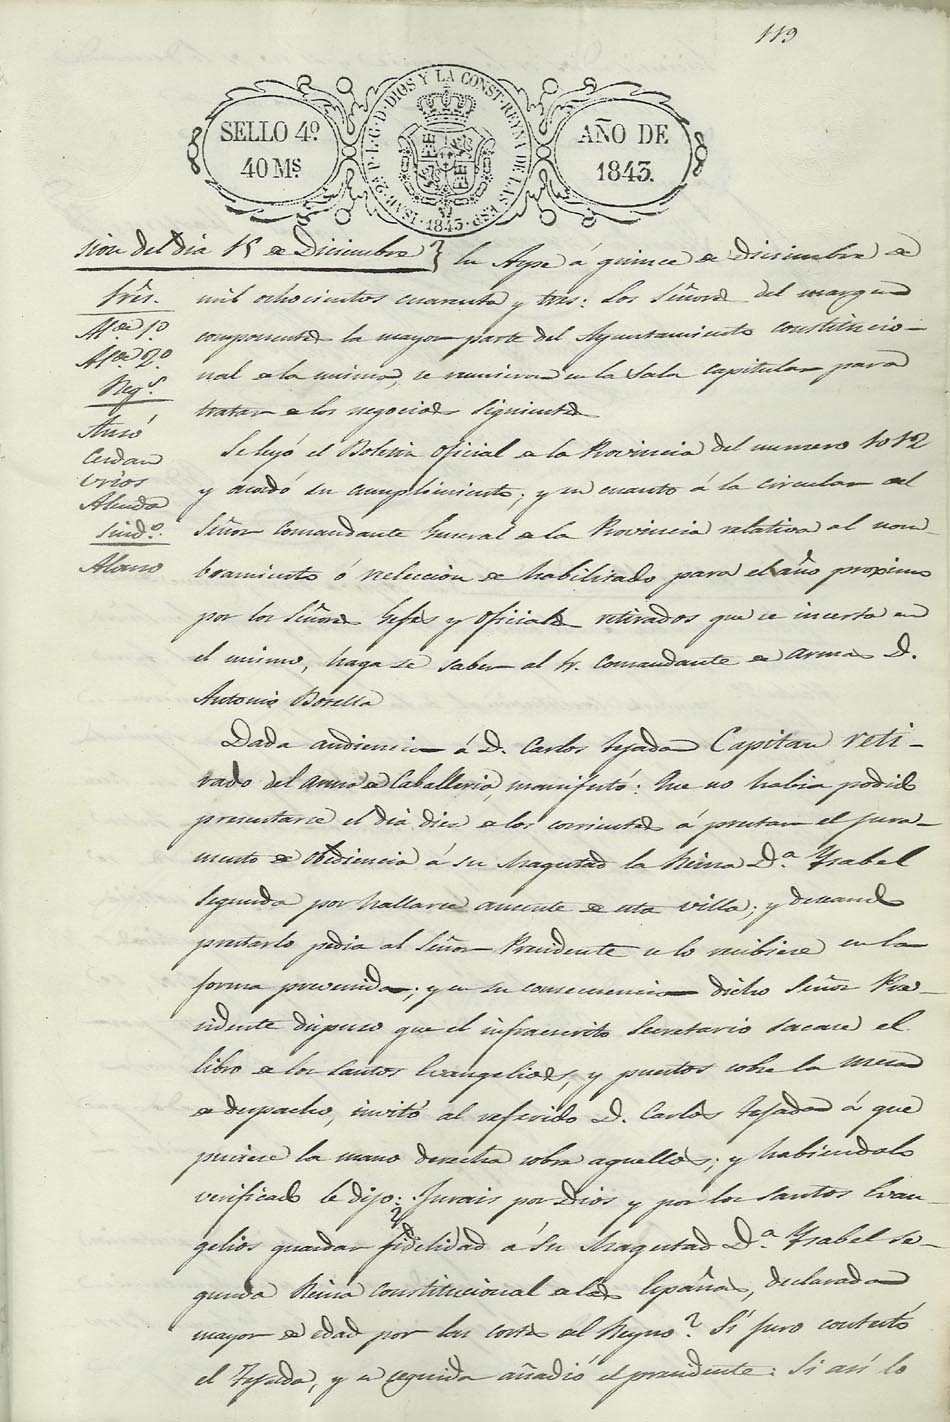 119
SELLO 4º
40 Ms
ISAB. 2ª P. L. G. D. DIOS Y LA CONST. REYNA DE LAS ESP.
1843
AÑO DE
1843.
sion del dia 15 de Diciembre
En Aspe á quince de diciembre de
mil ochocientos cuarenta y tres: los Señores del margen
componentes la mayor parte del Ayuntamiento constitucio-
nal de la misma, se reunieron en la sala capitular para
tratar de los negocios siguientes
Sres.
Ale. 1º
Ale. 2º
Regs.
Cerdan
Almodo
Sindº.
Alonso
Se leyó el Boletin oficial de la Provincia del numero 1012
y acordó su cumplimiento; y en cuanto á la circular del
Señor Comandante General de la Provincia relativa al nom-
bramiento ó reeleccion de habilitado para el año proximo
por los Señores Gefes y oficiales retirados que se incerta en
el mismo, haga se saber al Sr. Comandante de armas D.
Antonio Botella
Dada audiencia á D. Carlos Tejada Capitan reti-
rado del arma de Caballeria, manifestó: Que no habia podido
presentarse el dia diez de los corrientes á prestar el jura-
mento de obediencia á su Magestad la Reina D.ª Ysabel
Segunda por hallarse ausente de esta villa; y deseando
prestarlo pedia al Señor Presidente se lo recibiese en la
forma prevenida; y en su consecuencia dicho Señor Pre-
sidente dispuso que el infraescrito Secretario sacase el
libro de los Santos Evangelios, y puestos sobre la mesa
de despacho, invitó al referido D. Carlos Tejada á que
pusiese la mano derecha sobre aquellos; y habiendolo
verificado le dijo: ¿Jurais por Dios y por los Santos Evan-
gelios guardar fidelidad á su Magestad D.ª Ysabel se-
gunda Reina constitucional de las Españas, declarada
mayor de edad por las cortes del Reyno? Sí juro contestó
el Tejada, y en seguida añadió el presidente: Si así lo